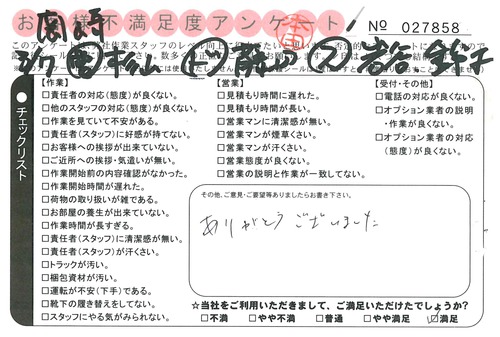 お客様不満足度アンケート
No 027858
岡崎
チェックリスト
【作業】
□責任者の対応(態度)が良くない。
□他のスタッフの対応(態度)が良くない。
□作業を見ていて不安がある。
□責任者(スタッフ)に好感が持てない。
□お客様への挨拶が出来ていない。
□ご近所への挨拶・気遣いが無い。
□作業開始前の内容確認がなかった。
□作業開始時間が遅れた。
□荷物の取り扱いが雑である。
□お部屋の養生が出来ていない。
□作業時間が長すぎる。
□責任者(スタッフ)に清潔感が無い。
□責任者(スタッフ)が汗くさい。
□トラックが汚い。
□梱包資材が汚い。
□運転が不安(下手)である。
□靴下の履き替えをしてない。
□スタッフにやる気がみられない。
【営業】
□見積もり時間に遅れた。
□見積もり時間が長い。
□営業マンに清潔感が無い。
□営業マンが煙草くさい。
□営業マンが汗くさい。
□営業態度が良くない。
□営業の説明と作業が一致してない。
【受付・その他】
□電話の対応が良くない。
□オプション業者の説明
・作業が良くない。
□オプション業者の対応
(態度)が良くない。
その他、ご意見・ご要望等ありましたらお書き下さい。
ありがとうございました
☆当社をご利用いただきまして、ご満足いただけたでしょうか?
□不満 □やや不満 □普通 □やや満足 ☑満足